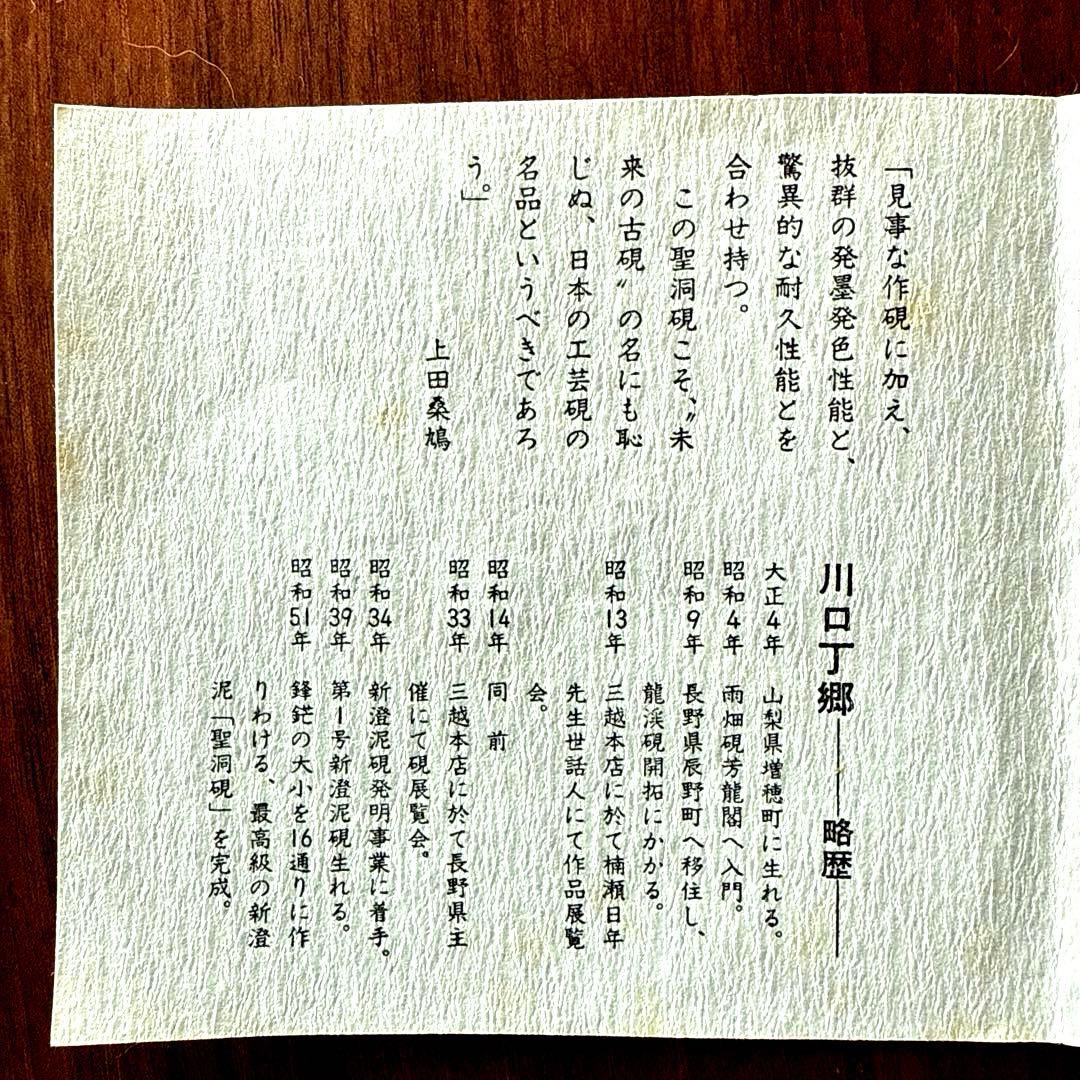 「見事な作硯に加え、
抜群の発墨発色性能と、
驚異的な耐久性能とを
合わせ持つ。
この聖洞硯こそ、〝未
来の古硯〟の名にも恥
じぬ、日本の工芸硯の
名品というべきであろ
う。」
上田桑鳩
川口丁郷――略歴――
大正4年 山梨県増穂町に生れる。
昭和4年 雨畑硯芳龍閣へ入門。
昭和9年 長野県辰野町へ移住し、
龍渓硯開拓にかかる。
昭和13年 三越本店に於て楠瀬日年
先生世話人にて作品展覧
会。
昭和14年 同 前
昭和33年 三越本店に於て長野県主
催にて硯展覧会。
昭和34年 新澄泥硯発明事業に着手。
昭和39年 第1号新澄泥硯生れる。
昭和51年 鋒鋩の大小を16通りに作
りわける、最高級の新澄
泥「聖洞硯」を完成。